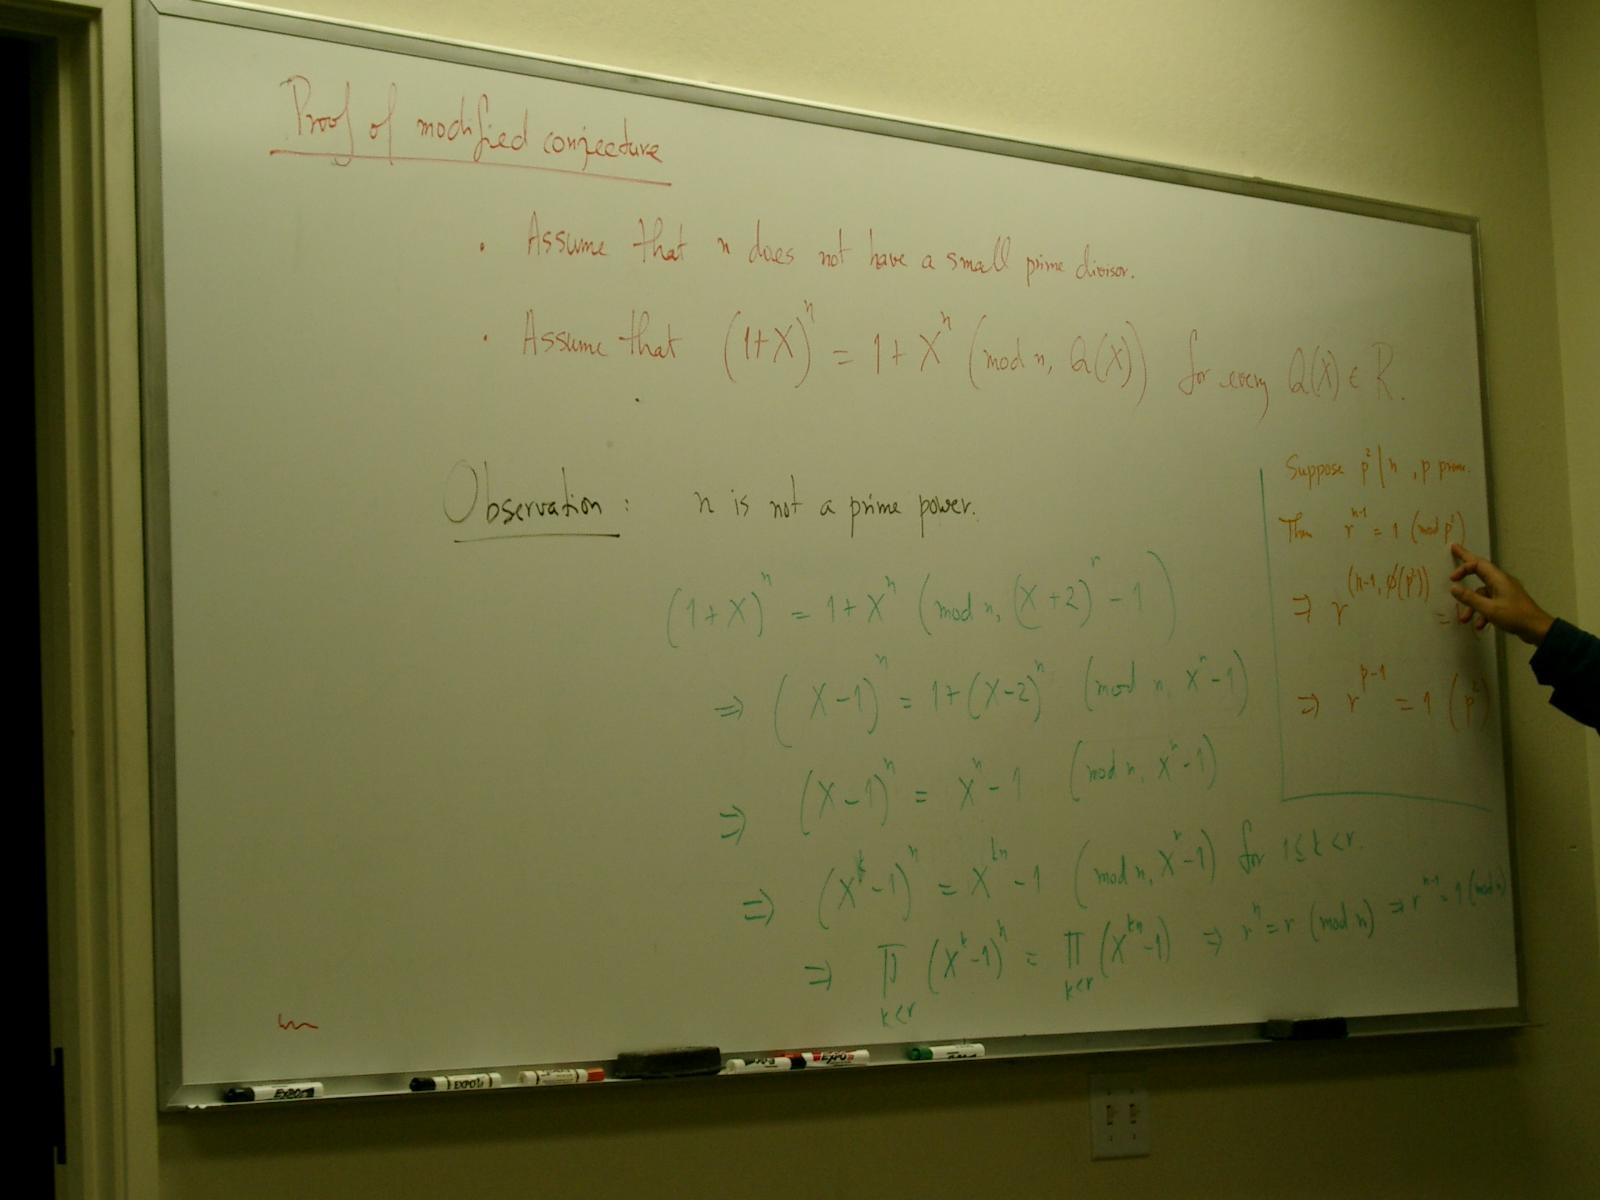 Proof of modified conjecture
· Assume that n does not have a small prime divisor.
· Assume that (1+X)^n = 1+X^n (mod n, Q(X)) for every Q(X) ∈ R.
Observation: n is not a prime power.
(1+X)^n = 1+X^n (mod n, (X+2)^r - 1)
⇒ (X-1)^n = 1+(X-2)^n (mod n, X^r-1)
⇒ (X-1)^n = X^n - 1 (mod n, X^r-1)
⇒ (X^k-1)^n = X^{kn} - 1 (mod n, X^r-1) for 1≤k<r.
⇒ ∏_{k<r} (X^k-1)^n = ∏_{k<r} (X^{kn}-1) ⇒ r^n = r (mod n) ⇒ r^{n-1} = 1 (mod n)
Suppose p^2 | n, p prime.
Then r^{n-1} = 1 (mod p^2)
⇒ r^{(n-1, φ(p^2))} = 1
⇒ r^{p-1} = 1 (p^2)
EXPO
EXPO
EXPO